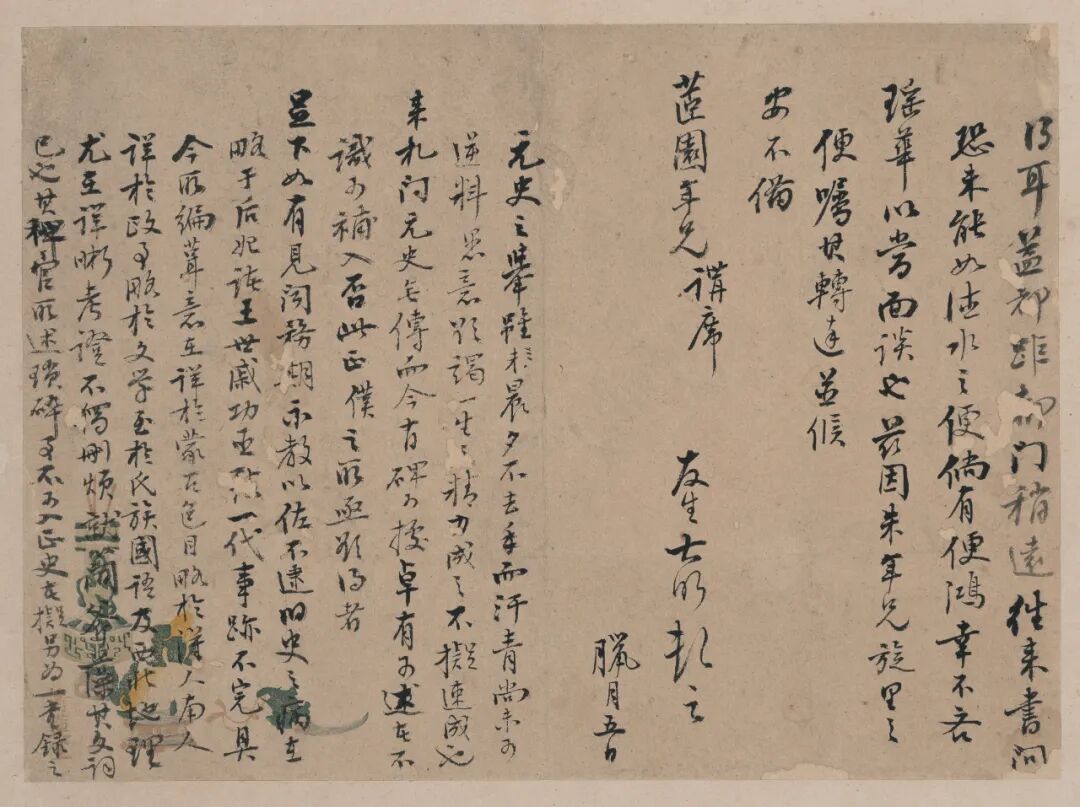 耳益祁距都门稍遠往来書问
恐未能如漣水之便倘有便鴻幸不吝
瑶華以當面談也兹因朱年兄旋里之
便囑其轉達並候
安不備
茝園年兄講席
友生士 頓之
臘月五日
元史之舉雖晨夕不去手而汗青尚未可
逆料愚意欲竭一生之精力成之不擬速成也
来札问元史無傳而今有碑可據卓有可述在不
識可補入否此正僕之所亟欲得者
足下如有見闻務期示教以佐不逮旧史之病在
略于后妃諸王世戚功臣致一代事跡不完具
今所編葺意在詳於蒙古色目略於漢人南人
詳於政事略於文学至於氏族國語及西北地理
尤至詳晰考證不獨刪煩就簡 其文詞
已也其稗官所述瑣碎事不可入正史在擬另為一書録之